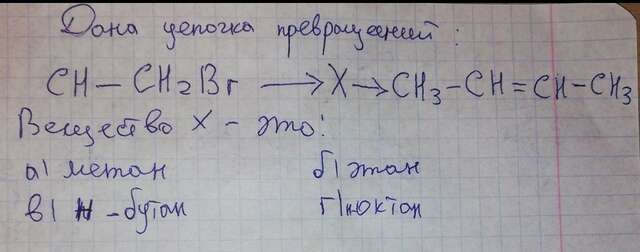 Дана цепочка превращений:
CH – CH₂Br ⟶ X → CH₃ – CH = CH – CH₃
Вещество X – это:
а) метан б) этан
в) н - бутан г) октан